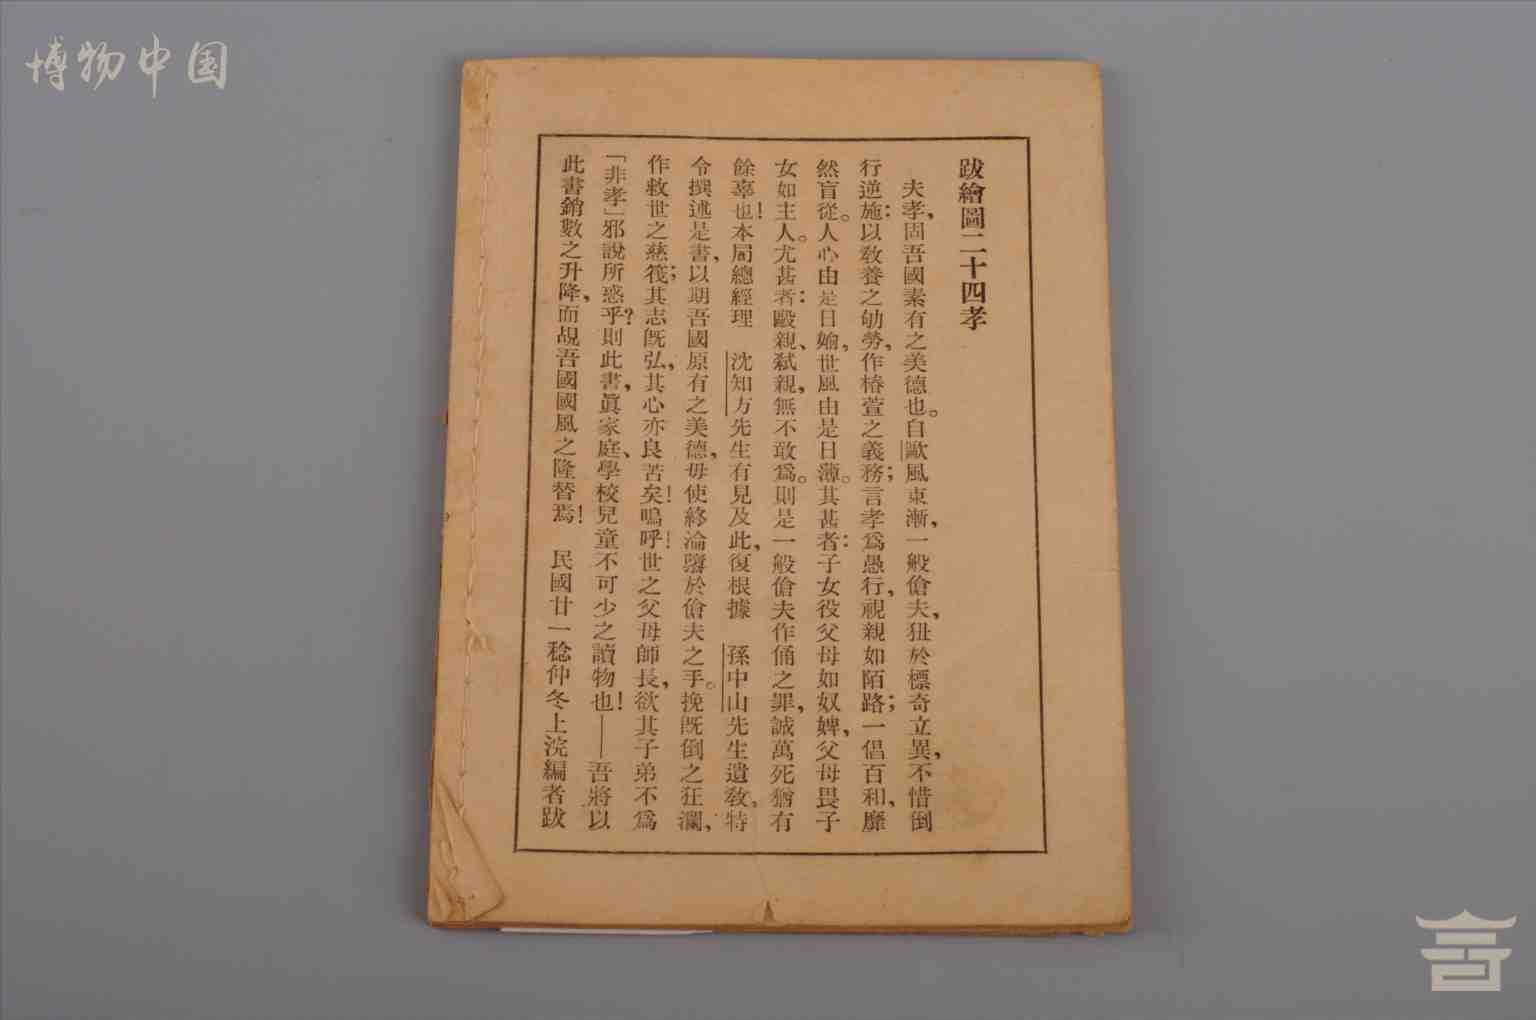 博物中国
跋繪圖二十四孝
夫孝，固吾國素有之美德也。自歐風東漸，一般傖夫，狃於標奇立異，不惜倒
行逆施：以敎養之劬勞，作椿萱之義務；言孝爲愚行，視親如陌路；一倡百和，靡
然盲從。人心由是日媮，世風由是日薄。其甚者：子女役父母如奴婢，父母畏子
女如主人。尤甚者：毆親、弑親，無不敢爲。則是一般傖夫作俑之罪，誠萬死猶有
餘辜也！本局總經理　沈知方先生有見及此，復根據　孫中山先生遺敎。特
令撰述是書，以期吾國原有之美德，毋使終淪墮於傖夫之手。挽既倒之狂瀾，
作救世之慈筏；其志既弘，其心亦良苦矣！嗚呼！世之父母師長，欲其子弟不爲
「非孝」邪說所惑乎？則此書，眞家庭、學校兒童不可少之讀物也！——吾將以
此書銷數之升降，而覘吾國國風之隆替焉！　民國廿一稔仲冬上浣編者跋